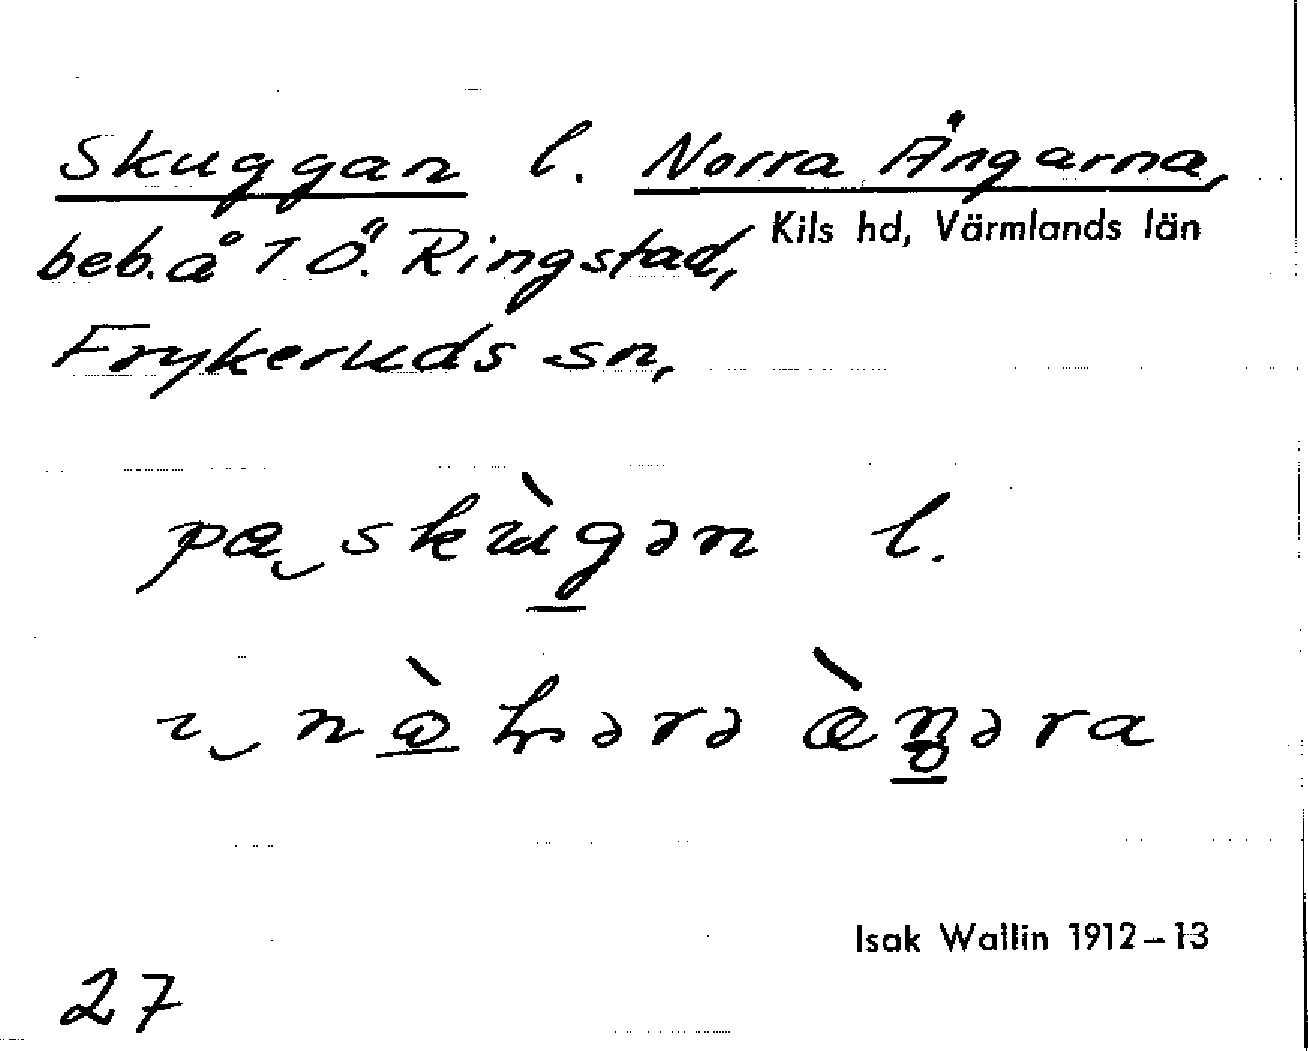 Skuggan l. Norra Ängarna,
Kils hd, Värmlands län
beb. å 1 Ö. Ringstad,
Frykeruds sn,
l.
Isak Wallin 1912–13
27